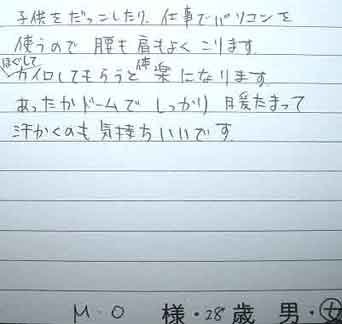 子供をだっこしたり、仕事でパソコンを
使うので腰も肩もよくこります。
ほぐして 体
カイロしてもらうと楽になります。
あったかドームでしっかり暖たまって
汗かくのも気持ちいいです。
M・O 様・28歳 男・女